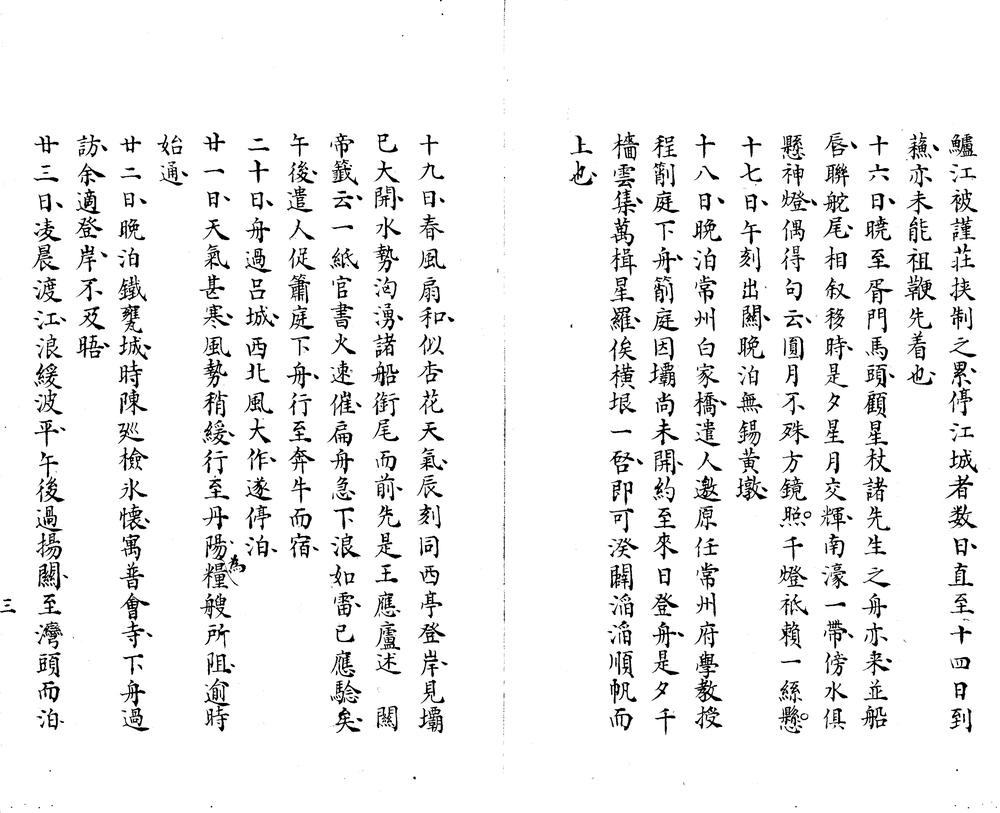 鱸江被謹莊挾制之累停江城者数日直至十四日到
蘓亦未能祖鞭先着也
十六日曉至胥門馬頭顧星杖諸先生之舟亦来並船
唇聯舵尾相叙移時是夕星月交輝南濠一帶傍水俱
懸神燈偶得句云圓月不殊方鏡照千燈祇賴一絲懸
十七日午刻出關晚泊無錫黃墩
十八日晚泊常州白家橋遣人邀原任常州府學教授
程劄庭下舟箾庭因壩尚未開約至來日登舟是夕千
檣雲集萬楫星羅俟橫垠一啓即可潑闢滔滔順帆而
上也
十九日春風扇和似杏花天氣辰刻同西亭登岸見壩
已大開水勢洶湧諸船銜尾而前先是王應廬述 關
帝籤云一紙官書火速催扁舟急下浪如雷已應驗矣
午後遣人促簫庭下舟行至奔牛而宿
二十日舟過呂城西北風大作遂停泊
廿一日天氣甚寒風勢稍緩行至丹陽為糧艘所阻逾時
始通
廿二日晚泊鐵甕城時陳廵檢氷懷寓普會寺下舟過
訪余適登岸不及晤
廿三日凌晨渡江浪緩波平午後過揚關至灣頭而泊
三